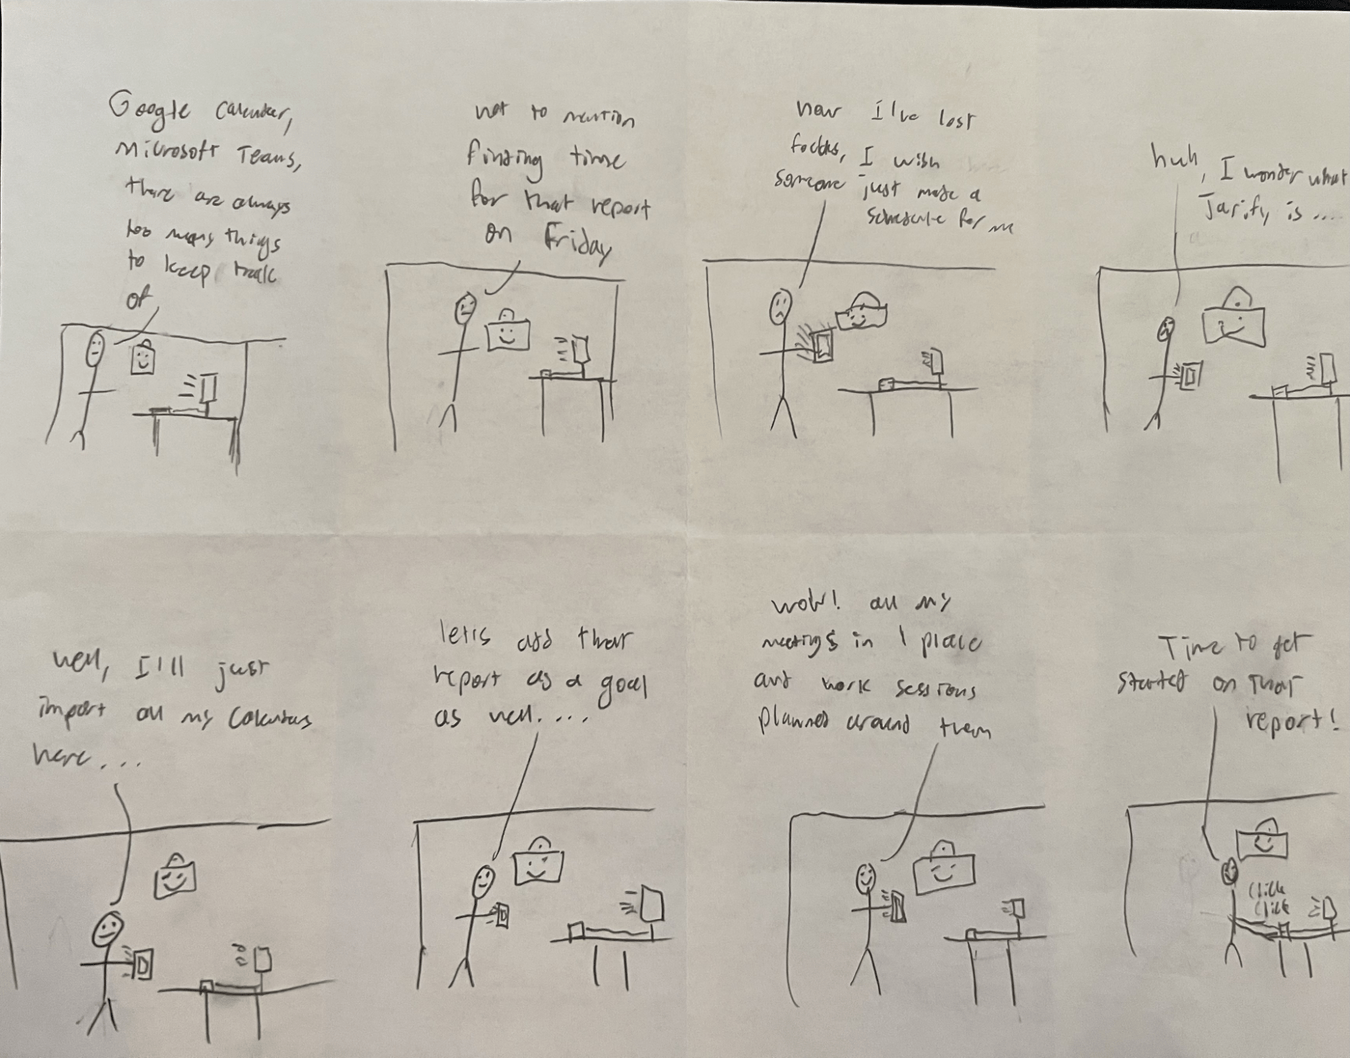 Google Calendar,
Microsoft Teams,
there are always
too many things
to keep track
of
not to mention
finding time
for that report
on Friday
now I've lost
focus, I wish
someone just made a
schedule for me
huh, I wonder what
Tarify is ....
well, I'll just
import all my Calendars
here...
let's add that
report as a goal
as well....
wow! all my
meetings in 1 place
and work sessions
planned around them
Time to get
started on that
report!
click
click